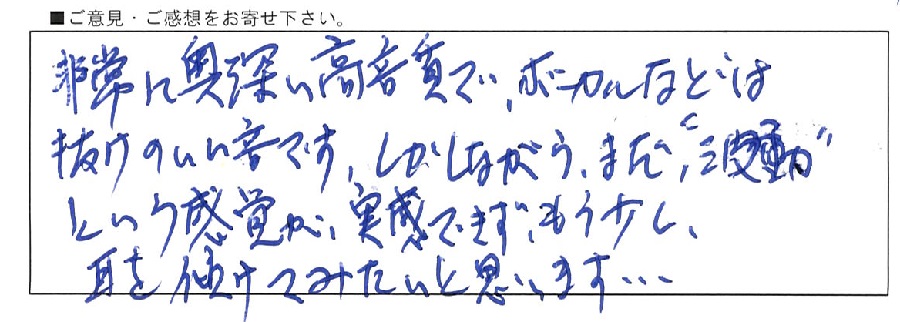 ■ご意見・ご感想をお寄せ下さい。
非常に奥深い高音質で、ボーカルなどは
抜けのいい音です。しかしながら、まだ“波動”
という感覚が、実感できず、もう少し、
耳を傾けてみたいと思います…